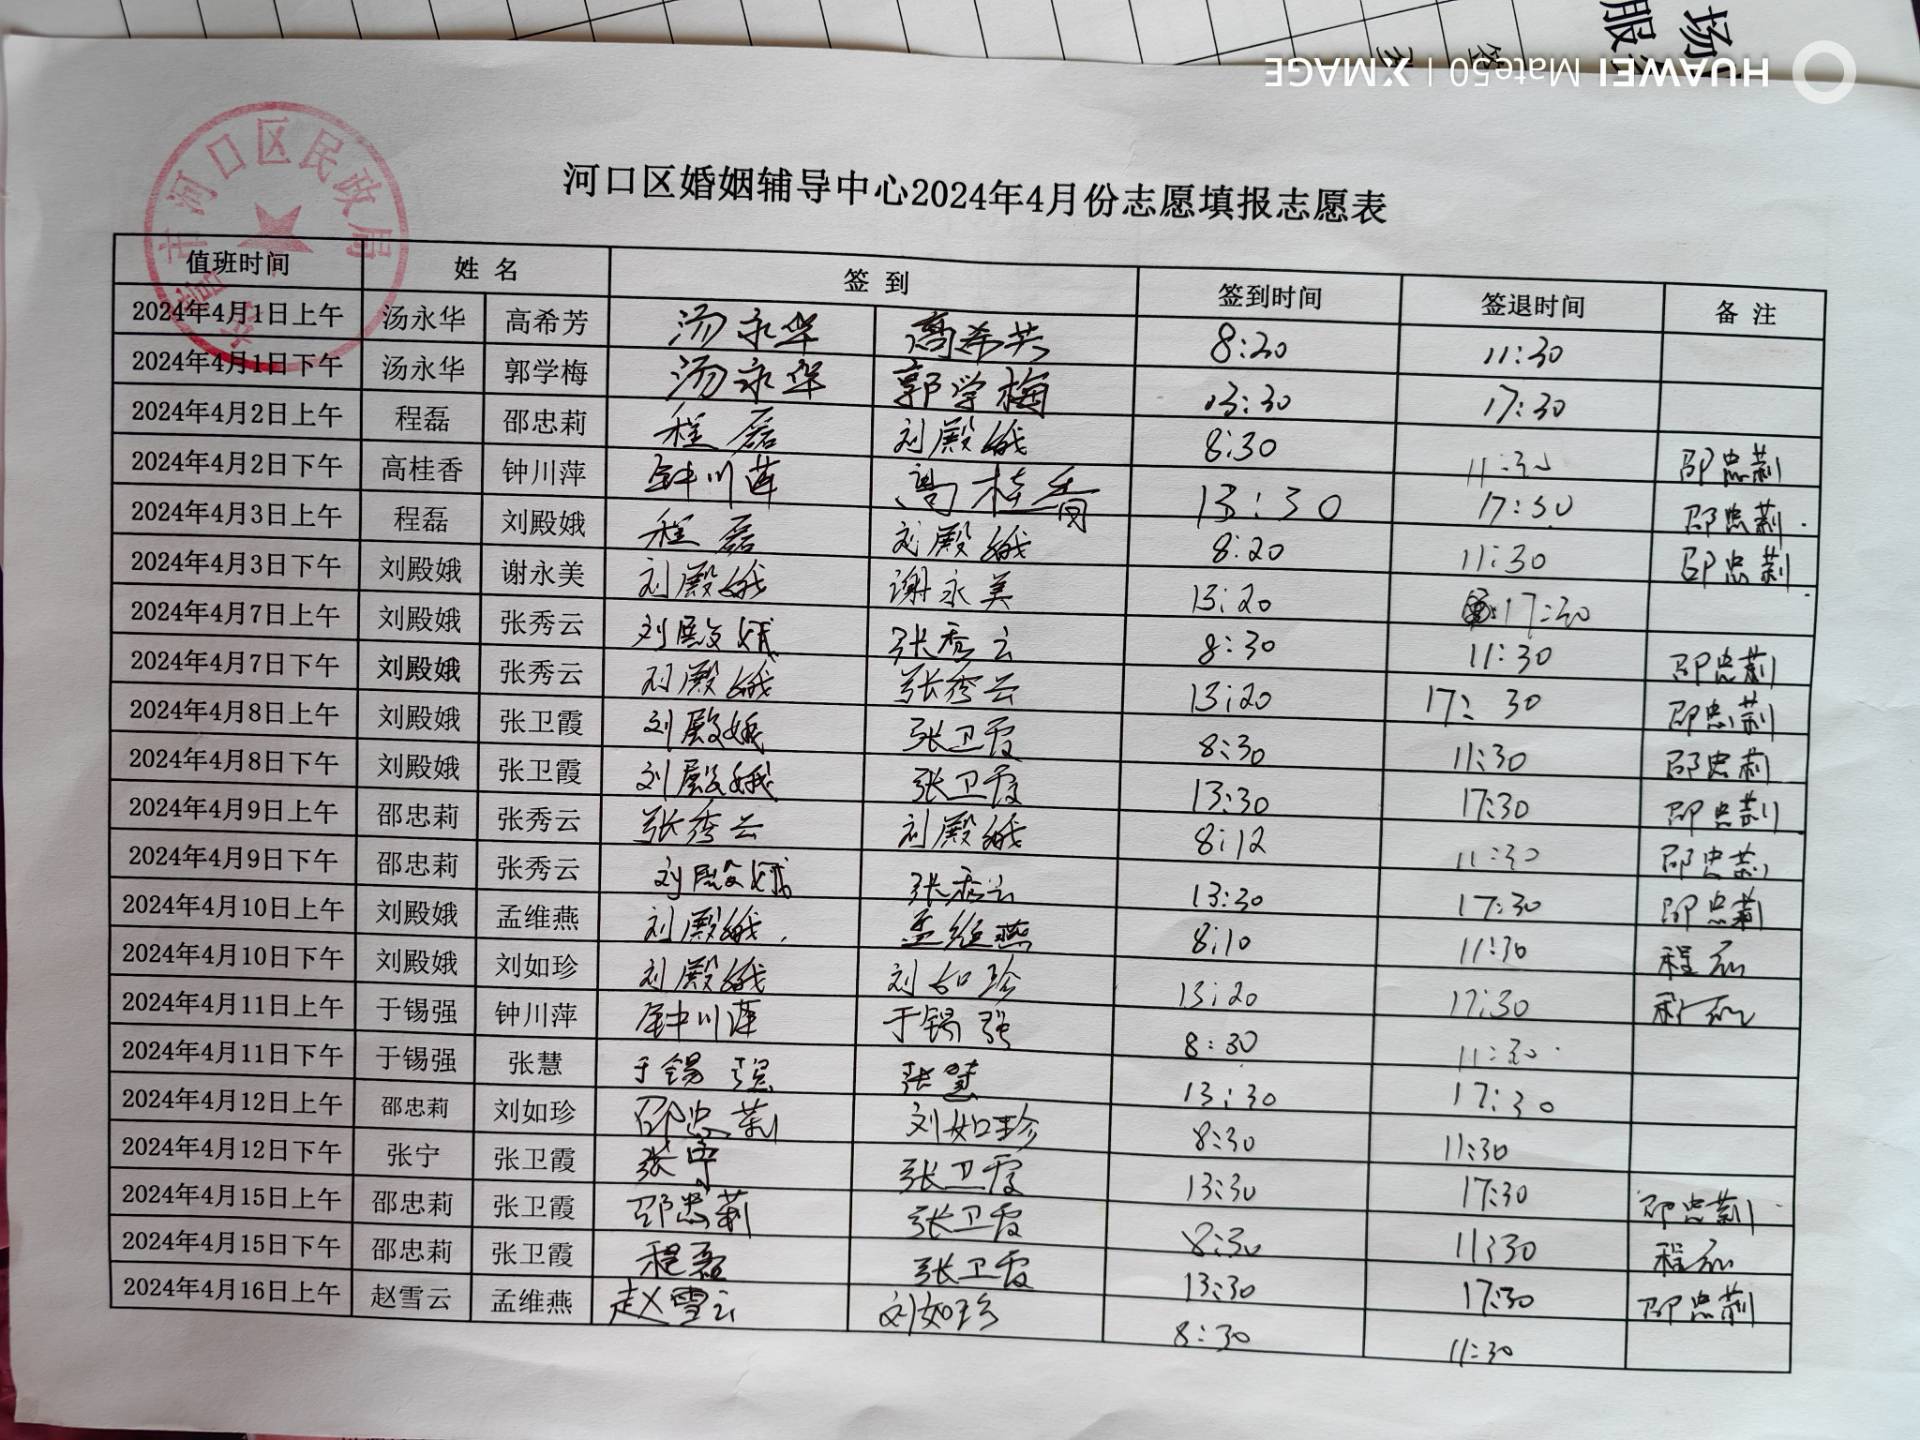 场
服
签
HUAWEI Mate50 | XMAGE
河口区民政局
河口区婚姻辅导中心2024年4月份志愿填报志愿表
值班时间 姓 名 签 到 签到时间 签退时间 备 注
2024年4月1日上午 汤永华 高希芳 汤永华 高希芳 8:20 11:30
2024年4月1日下午 汤永华 郭学梅 汤永华 郭学梅 13:30 17:30
2024年4月2日上午 程磊 邵忠莉 程磊 刘殿娥 8:30 11:30 邵忠莉
2024年4月2日下午 高桂香 钟川萍 钟川萍 高桂香 13:30 17:30 邵忠莉
2024年4月3日上午 程磊 刘殿娥 程磊 刘殿娥 8:20 11:30 邵忠莉
2024年4月3日下午 刘殿娥 谢永美 刘殿娥 谢永美 13:20 17:30
2024年4月7日上午 刘殿娥 张秀云 刘殿娥 张秀云 8:30 11:30 邵忠莉
2024年4月7日下午 刘殿娥 张秀云 刘殿娥 张秀云 13:20 17:30 邵忠莉
2024年4月8日上午 刘殿娥 张卫霞 刘殿娥 张卫霞 8:30 11:30 邵忠莉
2024年4月8日下午 刘殿娥 张卫霞 刘殿娥 张卫霞 13:30 17:30 邵忠莉
2024年4月9日上午 邵忠莉 张秀云 张秀云 刘殿娥 8:12 11:30 邵忠莉
2024年4月9日下午 邵忠莉 张秀云 刘殿娥 张秀云 13:30 17:30 邵忠莉
2024年4月10日上午 刘殿娥 孟维燕 刘殿娥 孟维燕 8:10 11:30 程磊
2024年4月10日下午 刘殿娥 刘如珍 刘殿娥 刘如珍 13:20 17:30 程磊
2024年4月11日上午 于锡强 钟川萍 钟川萍 于锡强 8:30 11:30
2024年4月11日下午 于锡强 张慧 于锡强 张慧 13:30 17:30
2024年4月12日上午 邵忠莉 刘如珍 邵忠莉 刘如珍 8:30 11:30
2024年4月12日下午 张宁 张卫霞 张宁 张卫霞 13:30 17:30 邵忠莉
2024年4月15日上午 邵忠莉 张卫霞 邵忠莉 张卫霞 8:30 11:30 程磊
2024年4月15日下午 邵忠莉 张卫霞 程磊 张卫霞 13:30 17:30 邵忠莉
2024年4月16日上午 赵雪云 孟维燕 赵雪云 刘如珍 8:30 11:30